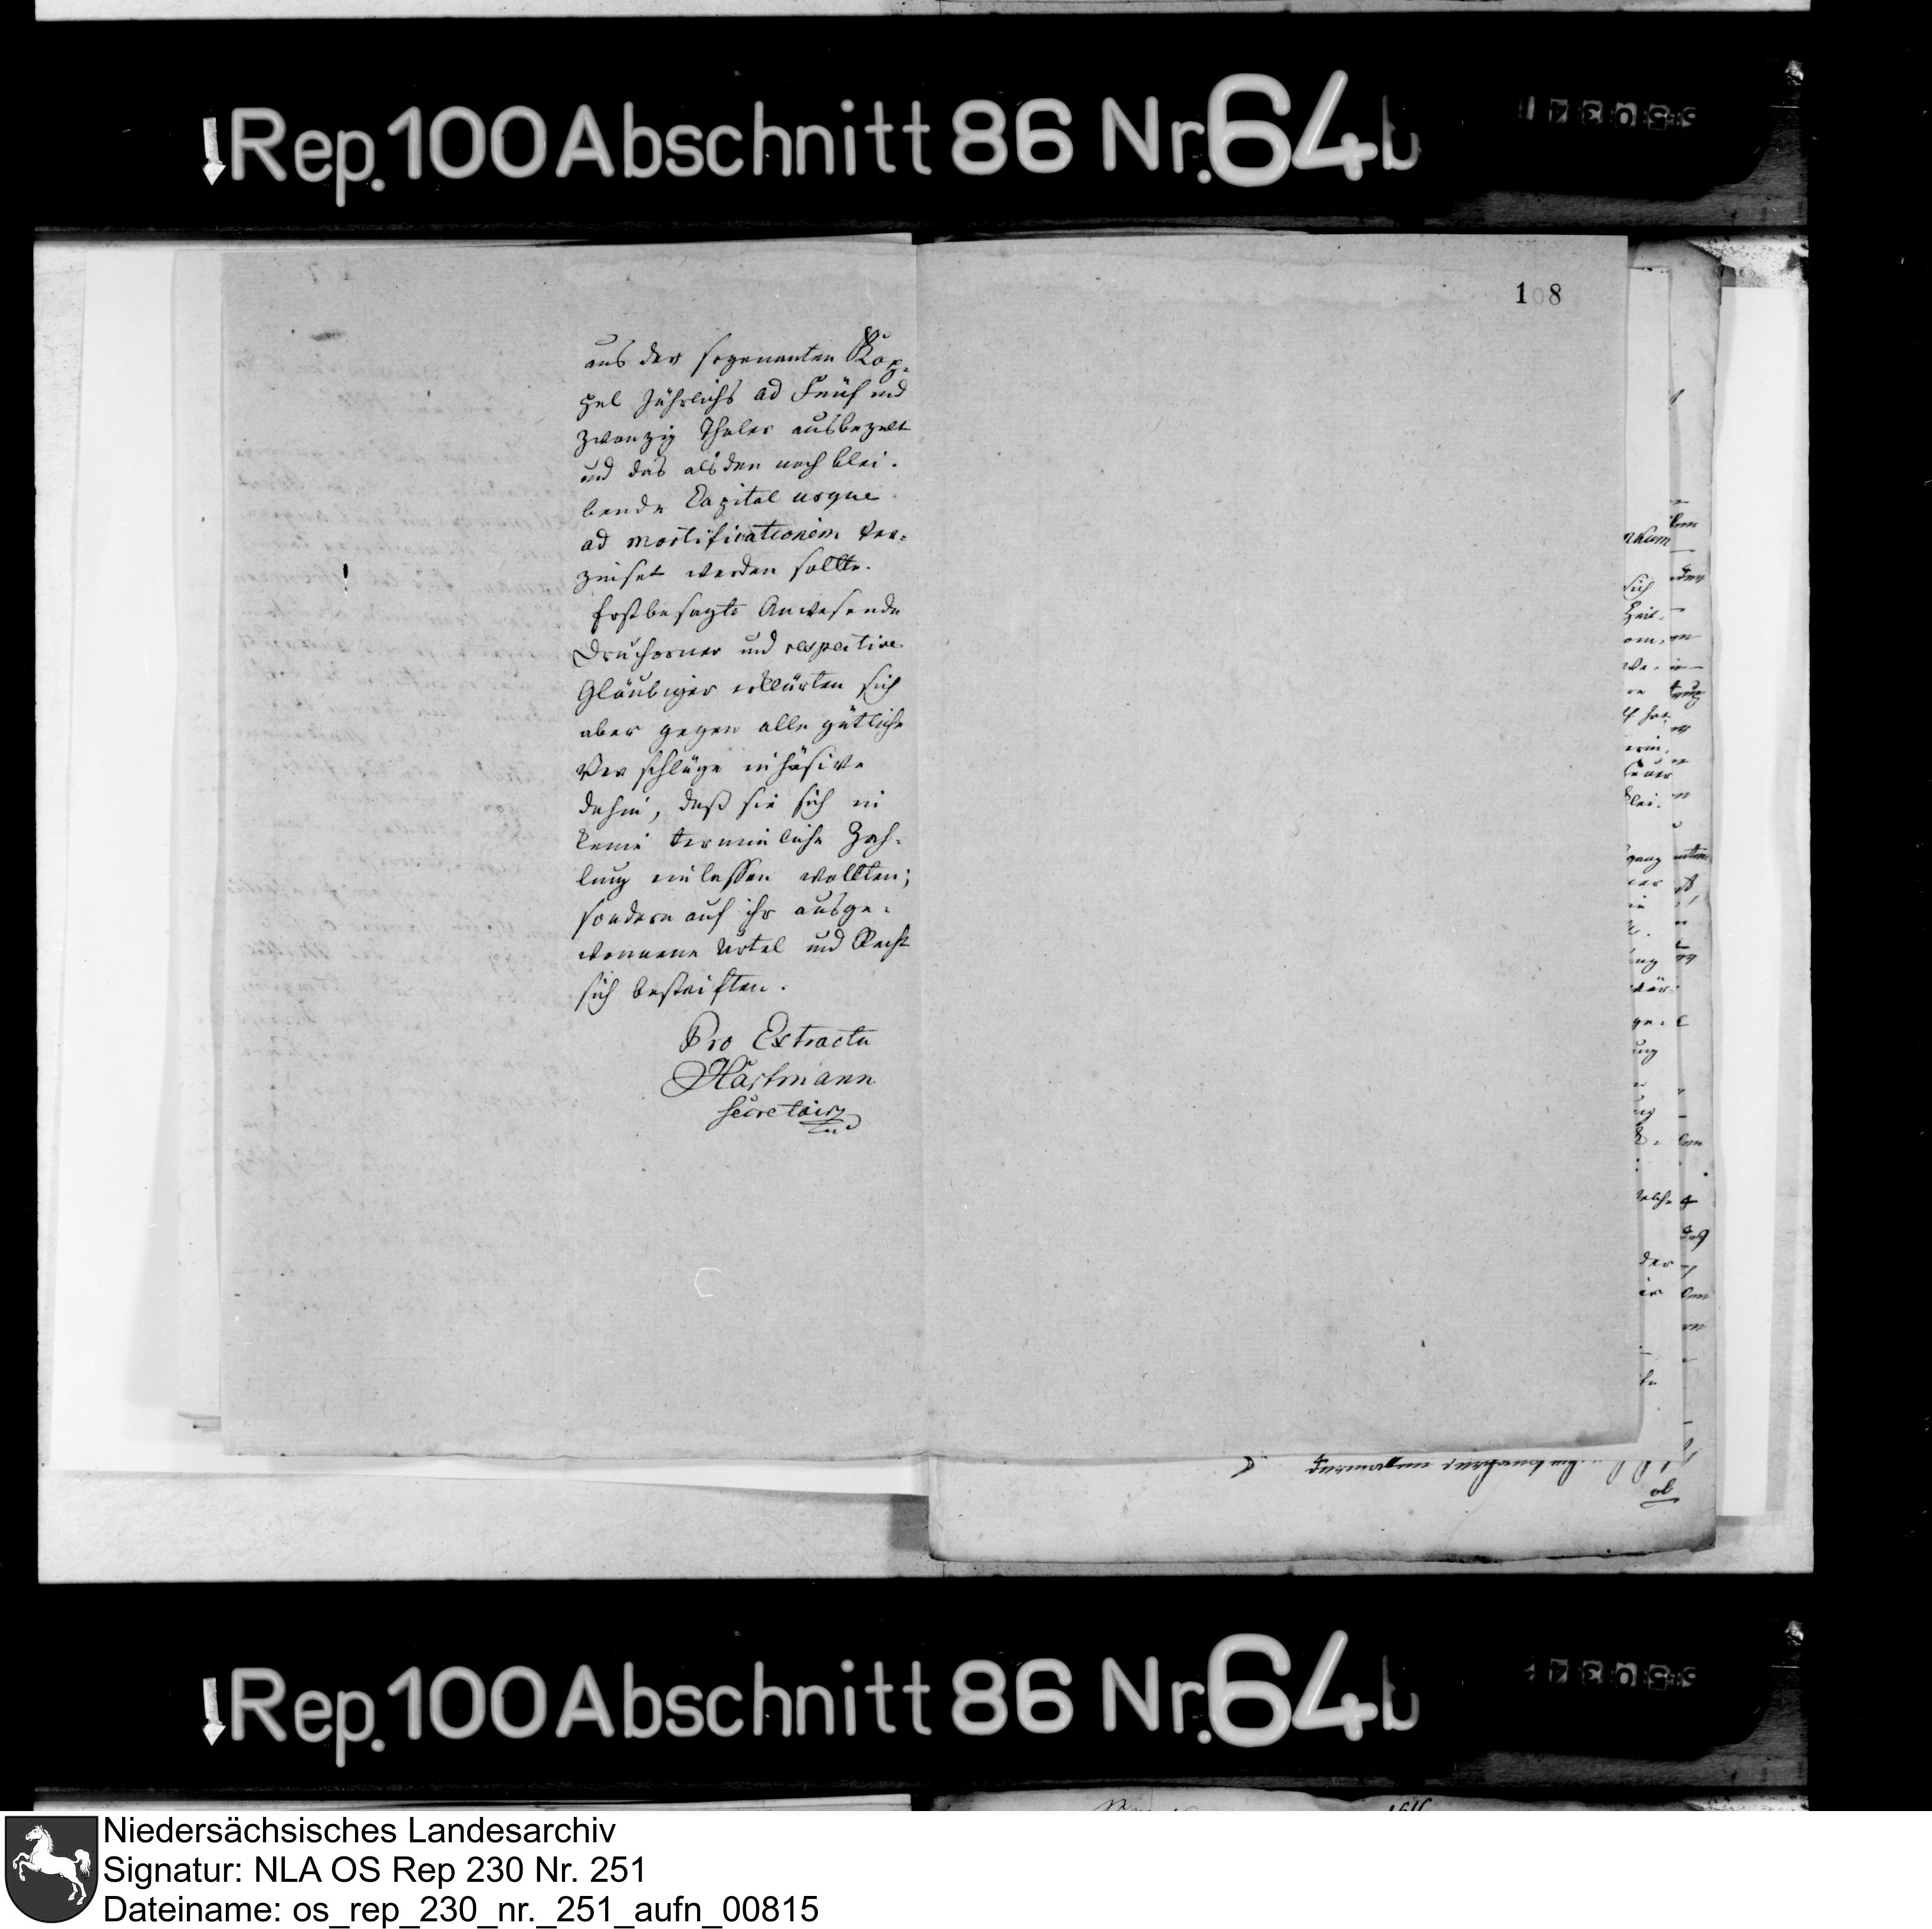 Rep. 100 Abschnitt 86 Nr. 64b
108
aus der sogenanten Kop-
pel Jährlichs ad Fünf und
zwanzig Thaler ausbezalt
und das alsden noch blei-
bende Capital usque
ad mortificationem ver-
zinset werden sollte.
Erstbesagte Anwesende
und respective
Gläubiger erklärten sich
aber gegen alle gütliche
Vorschläge inhäsive
dahin, daß sie sich in
keine terminliche Zah-
lung einlassen wollten;
sondern auf ihr ausge-
wonnene Urtel und Recht
sich besteiften.
Pro Extractu
Hartmann
Secretair
Rep. 100 Abschnitt 86 Nr. 64b
Niedersächsisches Landesarchiv
Signatur: NLA OS Rep 230 Nr. 251
Dateiname: os_rep_230_nr._251_aufn_00815